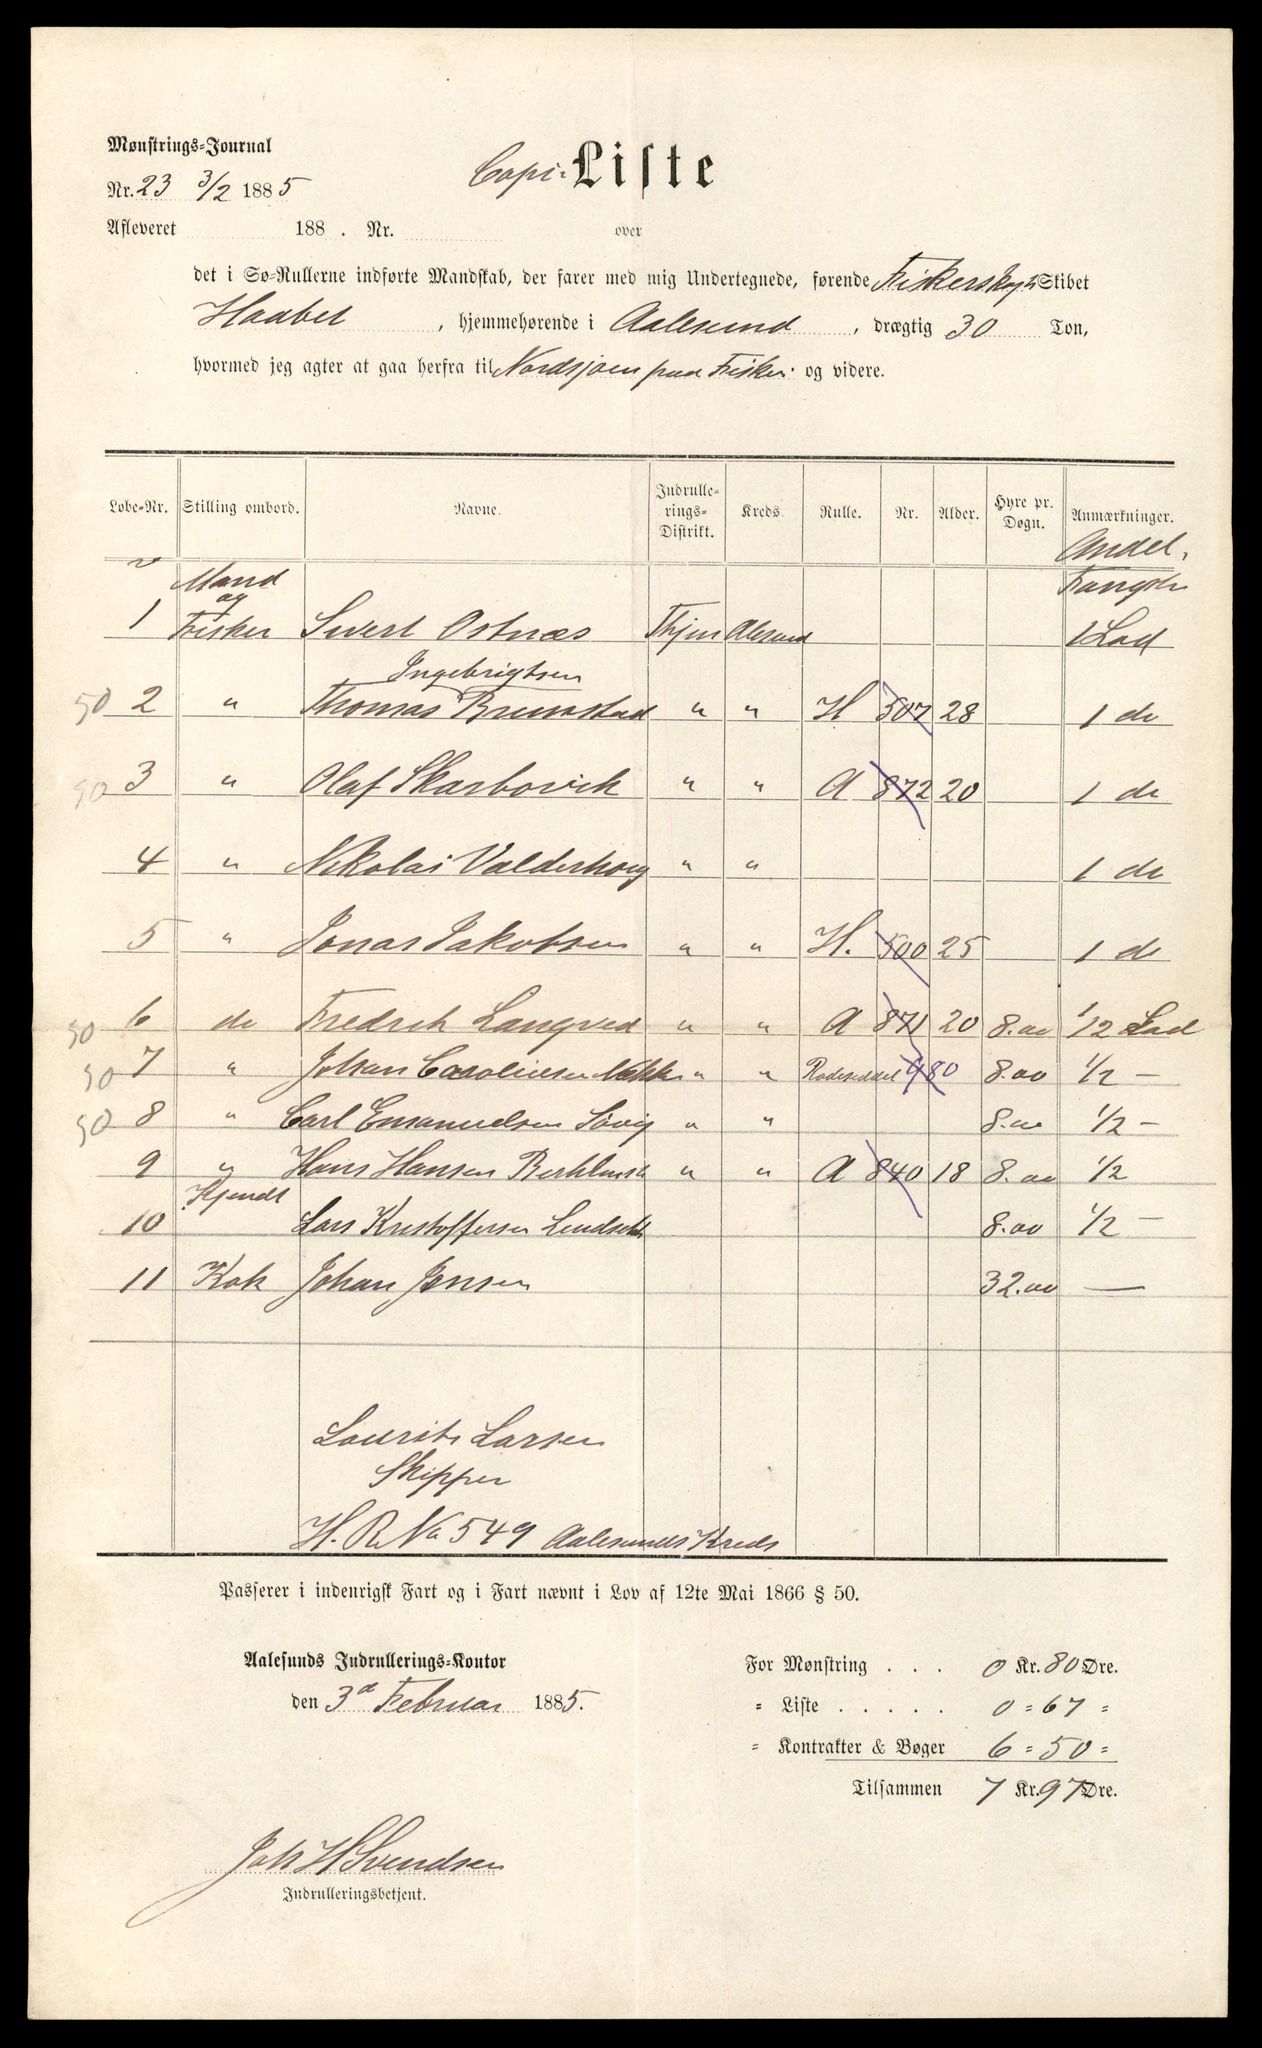 Mønstrings-Journal
Nr. 23 3/2 1885
Copi- Liste
Afleveret 188 . Nr.
over
det i Sø-Rullerne indførte Mandskab, der farer med mig Undertegnede, førende Skibet
Haabet, hjemmehørende i Aalesund, drægtig 30 Ton,
hvormed jeg agter at gaa herfra til Nordsjøen paa Fisker: og videre.
Løbe-Nr. Stilling ombord. Navne. Indrullerings-Distrikt. Kreds. Rulle. Nr. Alder. Hyre pr. Døgn. Anmærkninger.
Andel.
Mand Fangst
og
1 Fisker Sivert Ostnæs Thjem Alesund 1 Lod
Ingebrigtsen
50 2 " Thomas Brunstad " " H 507 28 1 do
50 3 " Olaf Skarbovik " " A 872 20 1 do
4 " Nikolai Valderhoug " " 1 do
5 " Jonas Jakobsen " " H. 500 25 1 do
50 6 do Fredrik Langved " " A 871 20 8.00 1/2 Lod
50 7 " Johan " " 980 8.00 1/2 —
50 8 " Carl Emanuelsen Søvig " " 8.00 1/2 —
9 " Hans Hansen " " A 840 18 8.00 1/2
10 Lars Kristoffersen 8.00 1/2 —
11 Kok Johan Jensen 32.00 —
Laurits Larsen
Skipper
H. R No 549 Aalesunds Kreds
Passerer i indenrigsk Fart og i Fart nævnt i Lov af 12te Mai 1866 § 50.
Aalesunds Indrullerings-Kontor
den 3d Februar 1885.
For Mønstring . . . 0 Kr. 80 Øre.
" Liste . . . . . 0 " 67 "
" Kontrakter & Bøger 6 " 50 "
Tilsammen 7 Kr. 97 Øre.
Joh H Svendsen
Indrulleringsbetjent.